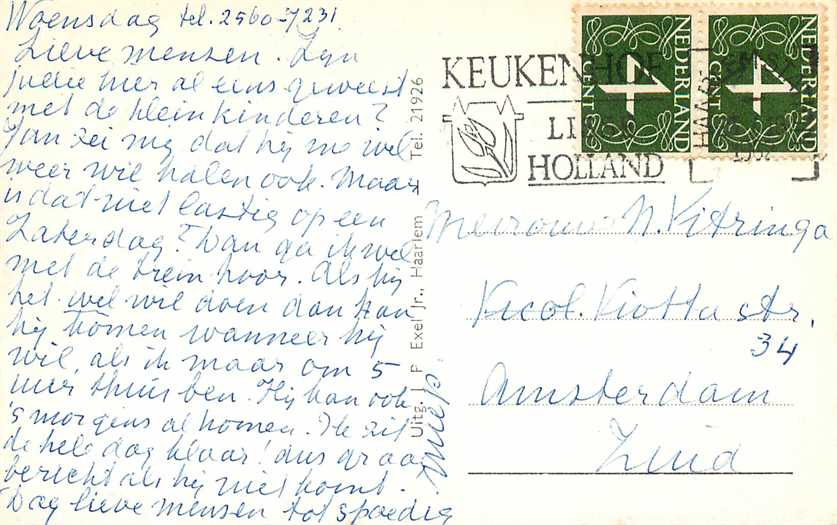 Woensdag tel. 2560-7231
Lieve mensen. Zyn
jullie hier al eens geweest
met de kleinkinderen?
Jan zei my dat hij me wel
weer wil halen ook. Maar
is dat niet lastig op een
Zaterdag? Dan ga ik wel
met de trein hoor. Als hij
het wel wil doen dan kan
hij komen wanneer hij
wil, als ik maar om 5
uur thuis ben. Hij kan ook
's morgens al komen. Ik zit
de hele dag klaar! dus graag
bericht als hij niet komt.
Dag lieve mensen tot spoedig
Uitg. J. P. Exel Jr., Haarlem - Tel. 21926
KEUKENHOF
LISSE
HOLLAND
NEDERLAND
4
CENT
NEDERLAND
4
CENT
Mevrouw N. Vitringa
Nicol. Viotta str.
34
Amsterdam
Zuid